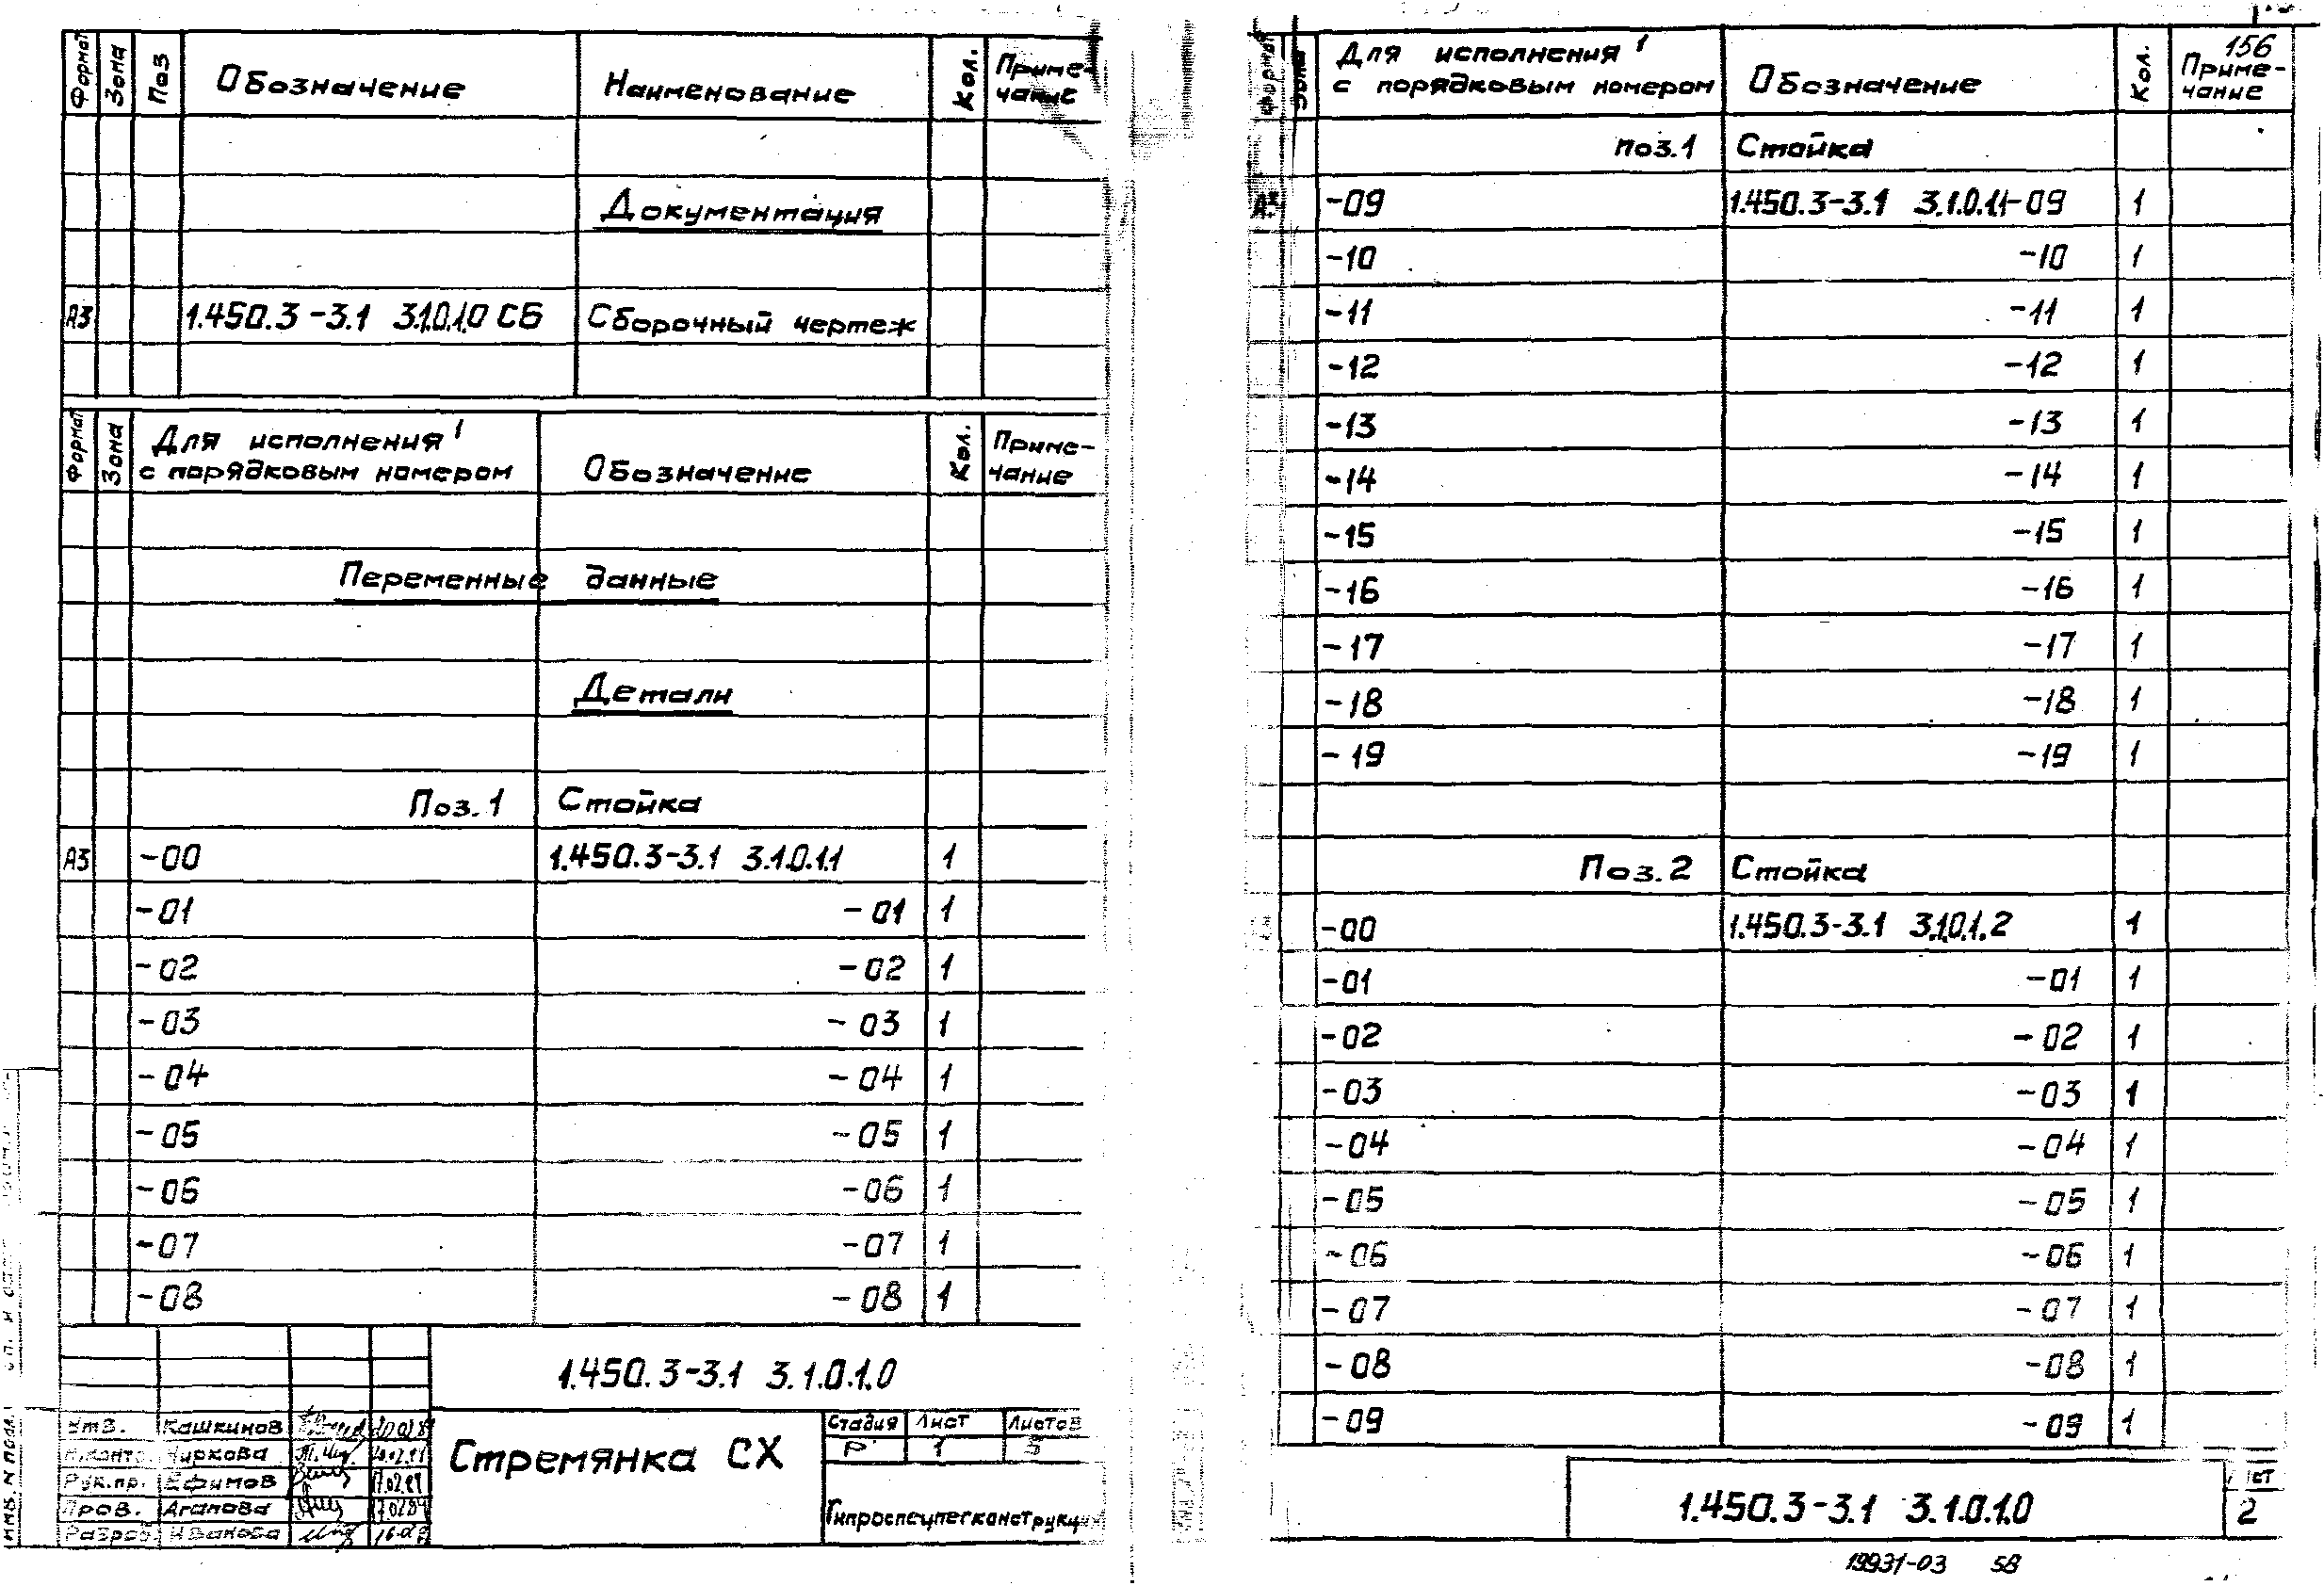 Формат Зона Поз Обозначение Наименование Кол. Приме-
чание
Документация
А3 1.450.3-3.1 3.1.0.1.0 СБ Сборочный чертеж
Формат Зона Для исполнения 1
с порядковым номером Обозначение Кол. Приме-
чание
Переменные данные
Детали
Поз.1 Стойка
А3 -00 1.450.3-3.1 3.1.0.1.1 1
-01 -01 1
-02 -02 1
-03 -03 1
-04 -04 1
-05 -05 1
-06 -06 1
-07 -07 1
-08 -08 1
1.450.3-3.1 3.1.0.1.0
Утв. Кашкинов
Н.контр. Чиркова
Рук.пр. Ефимов
Пров. Агапова
Разраб. Иванова
Стремянка СХ
Стадия Лист Листов
Р 1 5
Гипроспецлегконструкция
инв. N подл.
156
Формат Зона Для исполнения 1
с порядковым номером Обозначение Кол. Приме-
чание
поз.1 Стойка
А3 -09 1.450.3-3.1 3.1.0.1.1-09 1
-10 -10 1
-11 -11 1
-12 -12 1
-13 -13 1
-14 -14 1
-15 -15 1
-16 -16 1
-17 -17 1
-18 -18 1
-19 -19 1
Поз.2 Стойка
-00 1.450.3-3.1 3.1.0.1.2 1
-01 -01 1
-02 -02 1
-03 -03 1
-04 -04 1
-05 -05 1
-06 -06 1
-07 -07 1
-08 -08 1
-09 -09 1
1.450.3-3.1 3.1.0.1.0
Лист
2
19931-03 58